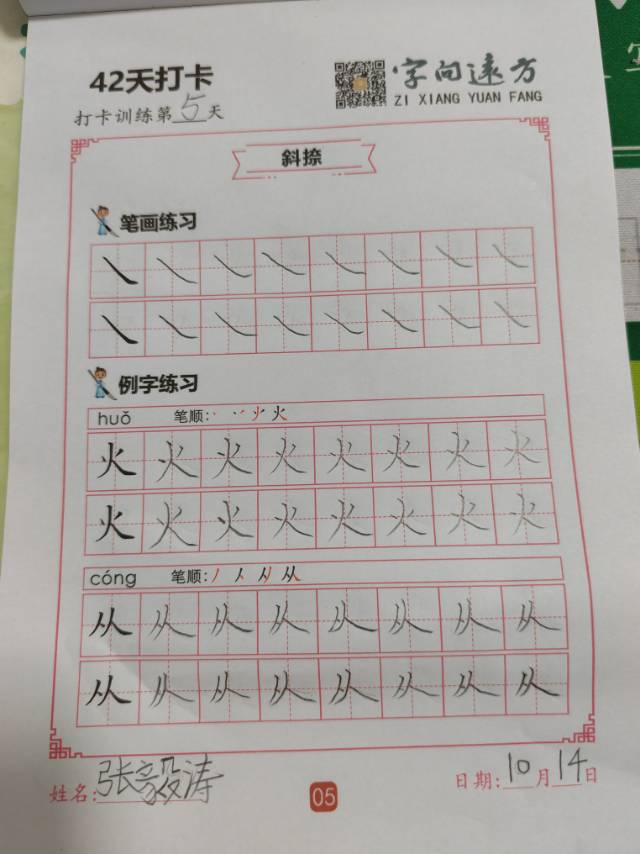 42天打卡
字向远方
ZI XIANG YUAN FANG
打卡训练第5天
斜捺
笔画练习
例字练习
huǒ 笔顺:
火
火 火 火 火 火 火 火 火
火 火 火 火 火 火 火 火
cóng 笔顺:
从
从 从 从 从 从 从 从 从
从 从 从 从 从 从 从 从
姓名:张毅涛
05
日期:10月14日